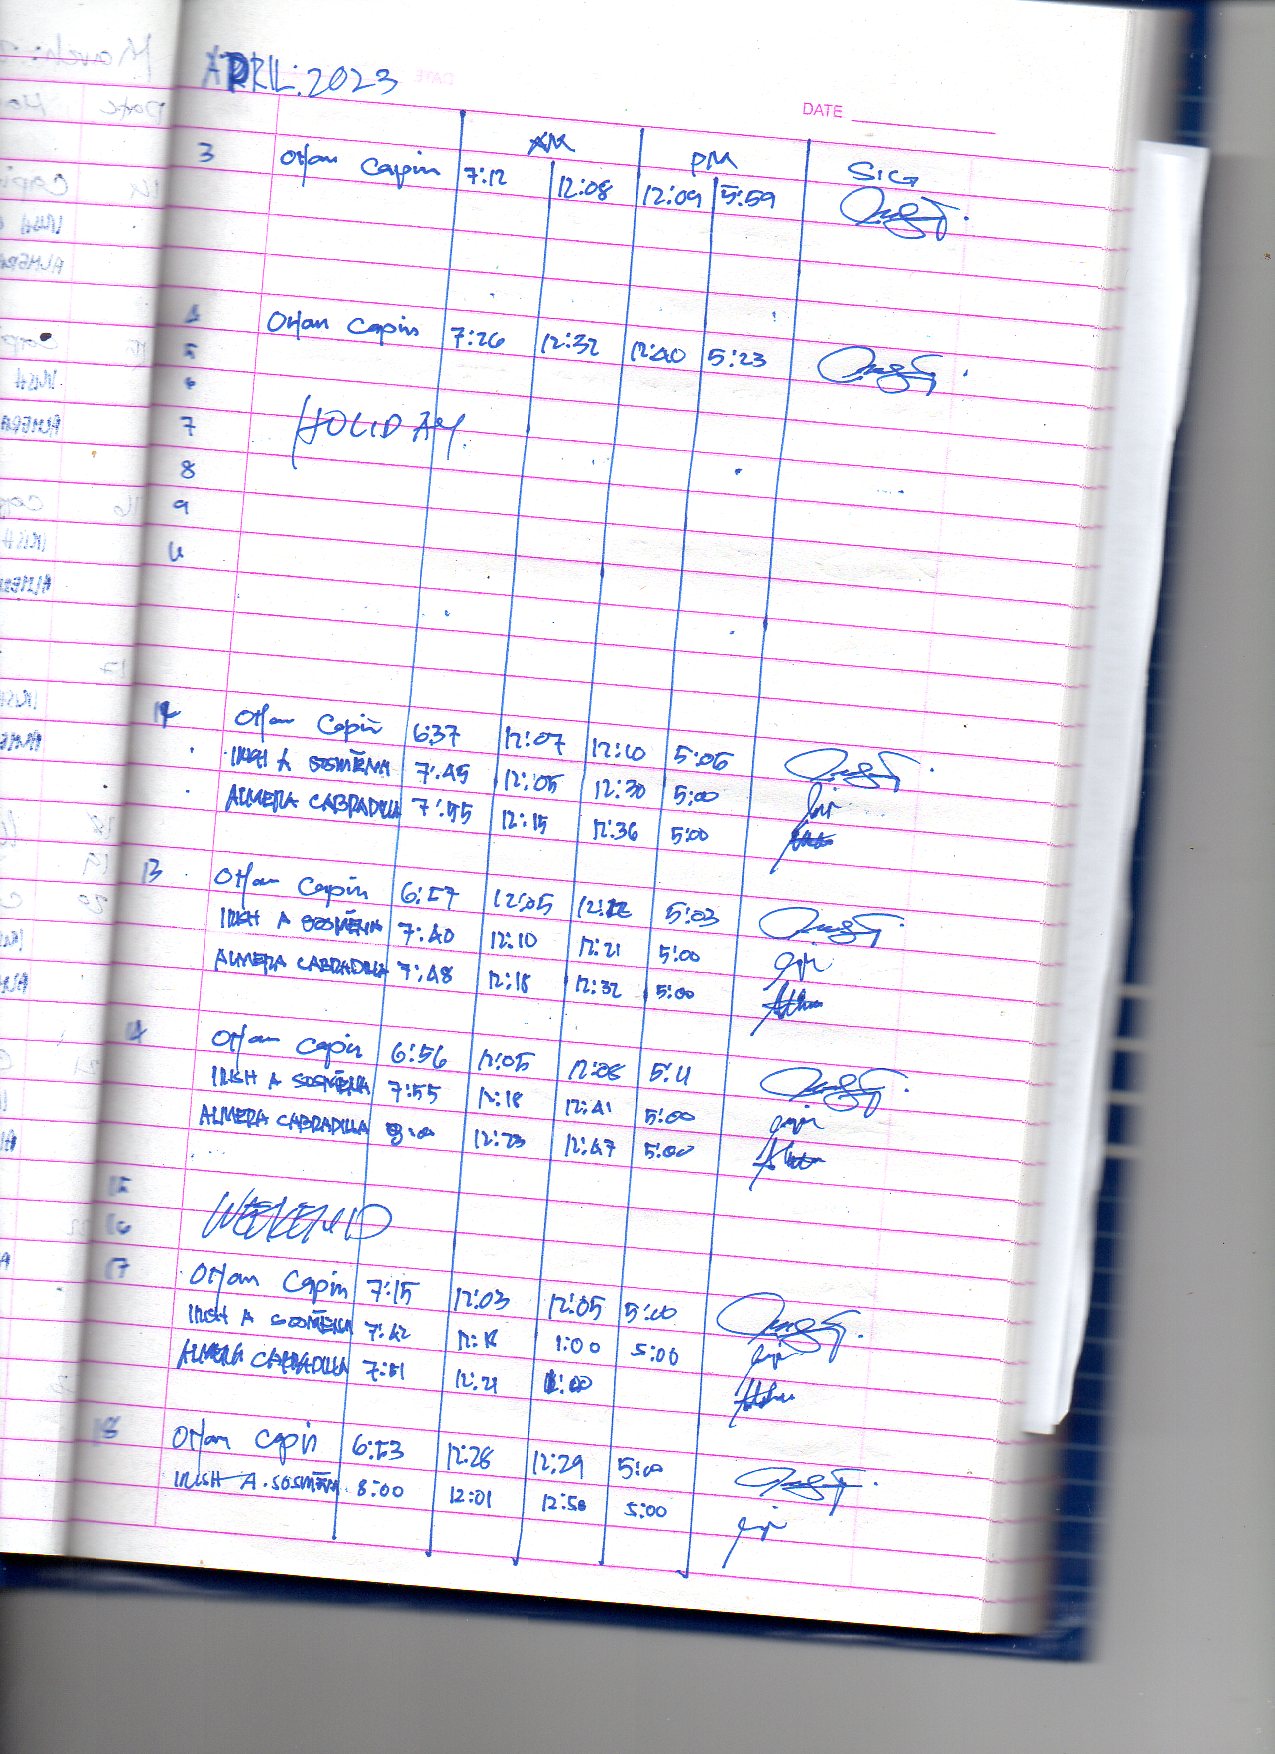 APRIL: 2023
DATE
AM PM SIG
3 Orfan Capin 7:12 12:08 12:09 5:59
4 Orfan Capin 7:26 12:32 12:40 5:23
5
6
7 HOLIDAY
8
9
12 Orfan Capin 6:37 12:07 12:10 5:05
IRISH A SOSMEÑA 7:45 12:05 12:30 5:00
ALMERA CABRADILLA 7:55 12:15 12:36 5:00
13 Orfan Capin 6:57 12:05 5:03
IRISH A SOSMEÑA 7:40 12:10 12:21 5:00
ALMERA CABRADILLA 7:48 12:18 12:32 5:00
14 Orfan Capin 6:56 12:05 12:06 5:11
IRISH A SOSMEÑA 7:55 12:18 12:41 5:00
ALMERA CABRADILLA 8:00 12:23 12:47 5:00
15
16 WEEKEND
17 Orfan Capin 7:15 12:03 12:05 5:00
IRISH A SOSMEÑA 7:42 12:18 1:00 5:00
ALMERA CABRADILLA 7:51 12:21 1:00
18 Orfan Capin 6:53 12:28 12:29 5:00
IRISH A. SOSMEÑA 8:00 12:01 12:50 5:00